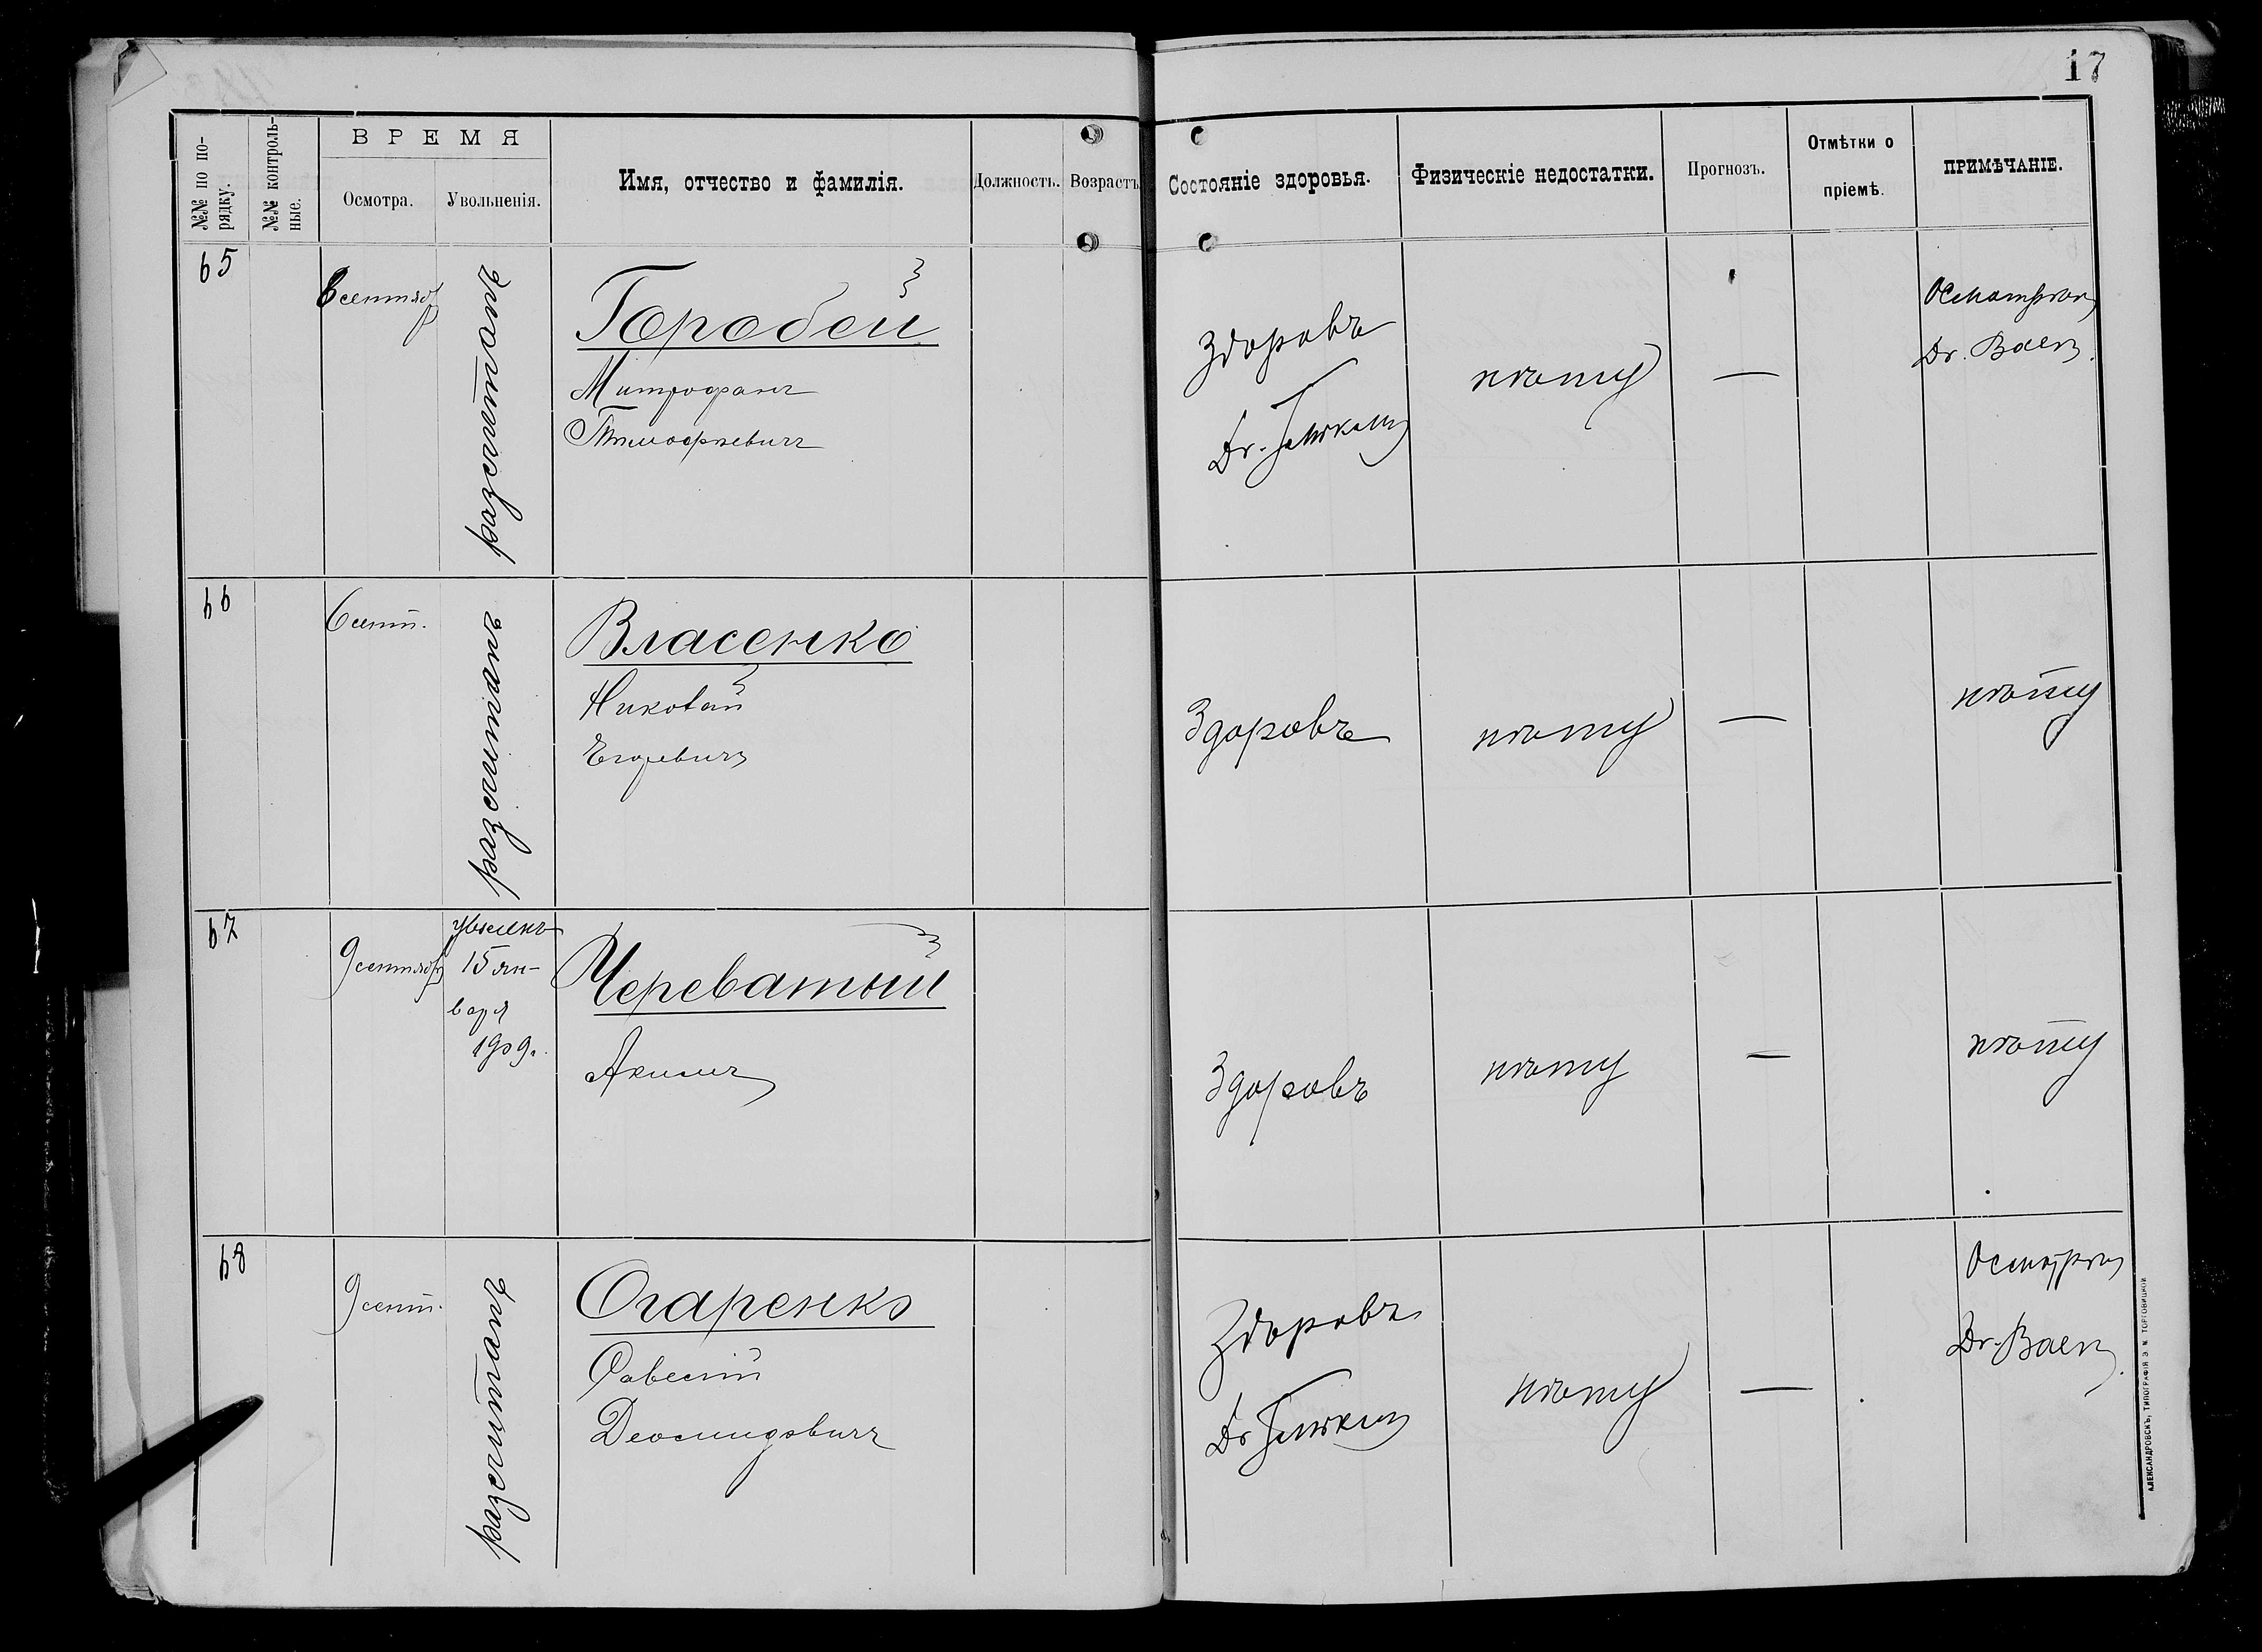 17
№№ по по-
рядку.
№№ контроль-
ные.
ВРЕМЯ
Осмотра.
Увольненія.
Имя, отчество и фамилія.
Должность.
Возрастъ
Состояніе здоровья.
Физическіе недостатки.
Прогнозъ.
Отмѣтки о
пріемѣ.
ПРИМѢЧАНІЕ.
65
8 сентяб
разсчитанъ
Горобей
Митрофанъ
Тимофѣевичъ
Здоровъ
Dr.
нѣту
—
Осмотрѣн
Dr. Баен
66
6 сент.
разсчитанъ
Власенко
Николай
Егоревичъ
Здоровъ
нѣту
—
нѣту
67
9 сентяб
уволенъ
15 ян-
варя
1909.
Череватый
Акимъ
Здоровъ
нѣту
—
нѣту
68
9 сент.
разсчитанъ
Огаренко
Савелій
Здоровъ
Dr
нѣту
—
Осмотрѣн
Dr. Баен
АЛЕКСАНДРОВСКЪ, ТИПОГРАФІЯ Э. И. ТОРГОВИЦКОЙ